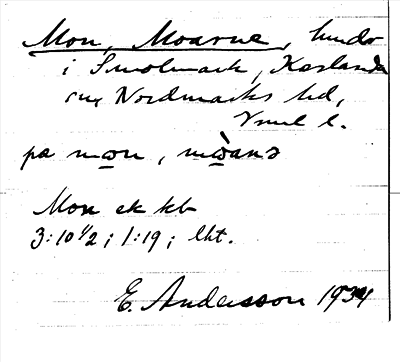 Mon, Moarne, lunder
i Smolmark, Karlanda
sn, Nordmarks hd,
Vrml l.
på mo̲n, mò̲anə
Mon ek kb
3:10 1/2; 1:19; lht.
E. Andersson 1934